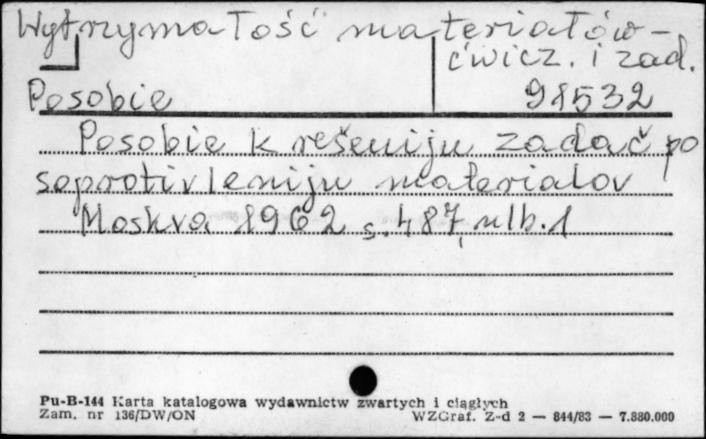 Wytrzymałość materiałów -
ćwicz. i zad.
Posobie 91532
Posobie k rešeniju zadač po
soprotivleniju materialov
Moskva 1962 s. 487, nlb. 1
Pu-B-144 Karta katalogowa wydawnictw zwartych i ciągłych
Zam. nr 136/DW/ON WZGraf. Z-d 2 — 844/83 — 7.880.000